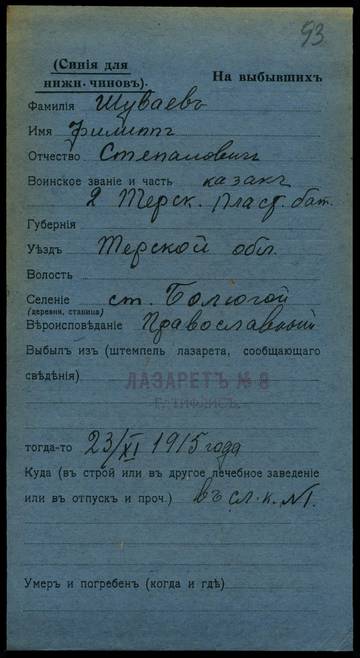 93
(Синія для
нижн. чиновъ).
На выбывшихъ
Фамилія Шуваевъ
Имя Филиппъ
Отчество Степановичъ
Воинское званіе и часть казакъ
2 Терск. Пласт. бат.
Губернія
Уѣздъ Терской обл.
Волость
Селеніе ст.
(деревня, станица)
Вѣроисповѣданіе Православный
Выбылъ изъ (штемпель лазарета, сообщающаго
свѣдѣнія)
ЛАЗАРЕТЪ № 8
Г. ТИФЛИСЪ.
тогда-то 23/XI 1915 года
Куда (въ строй или въ другое лечебное заведеніе
или въ отпускъ и проч.) въ сл. к.
Умеръ и погребенъ (когда и гдѣ)